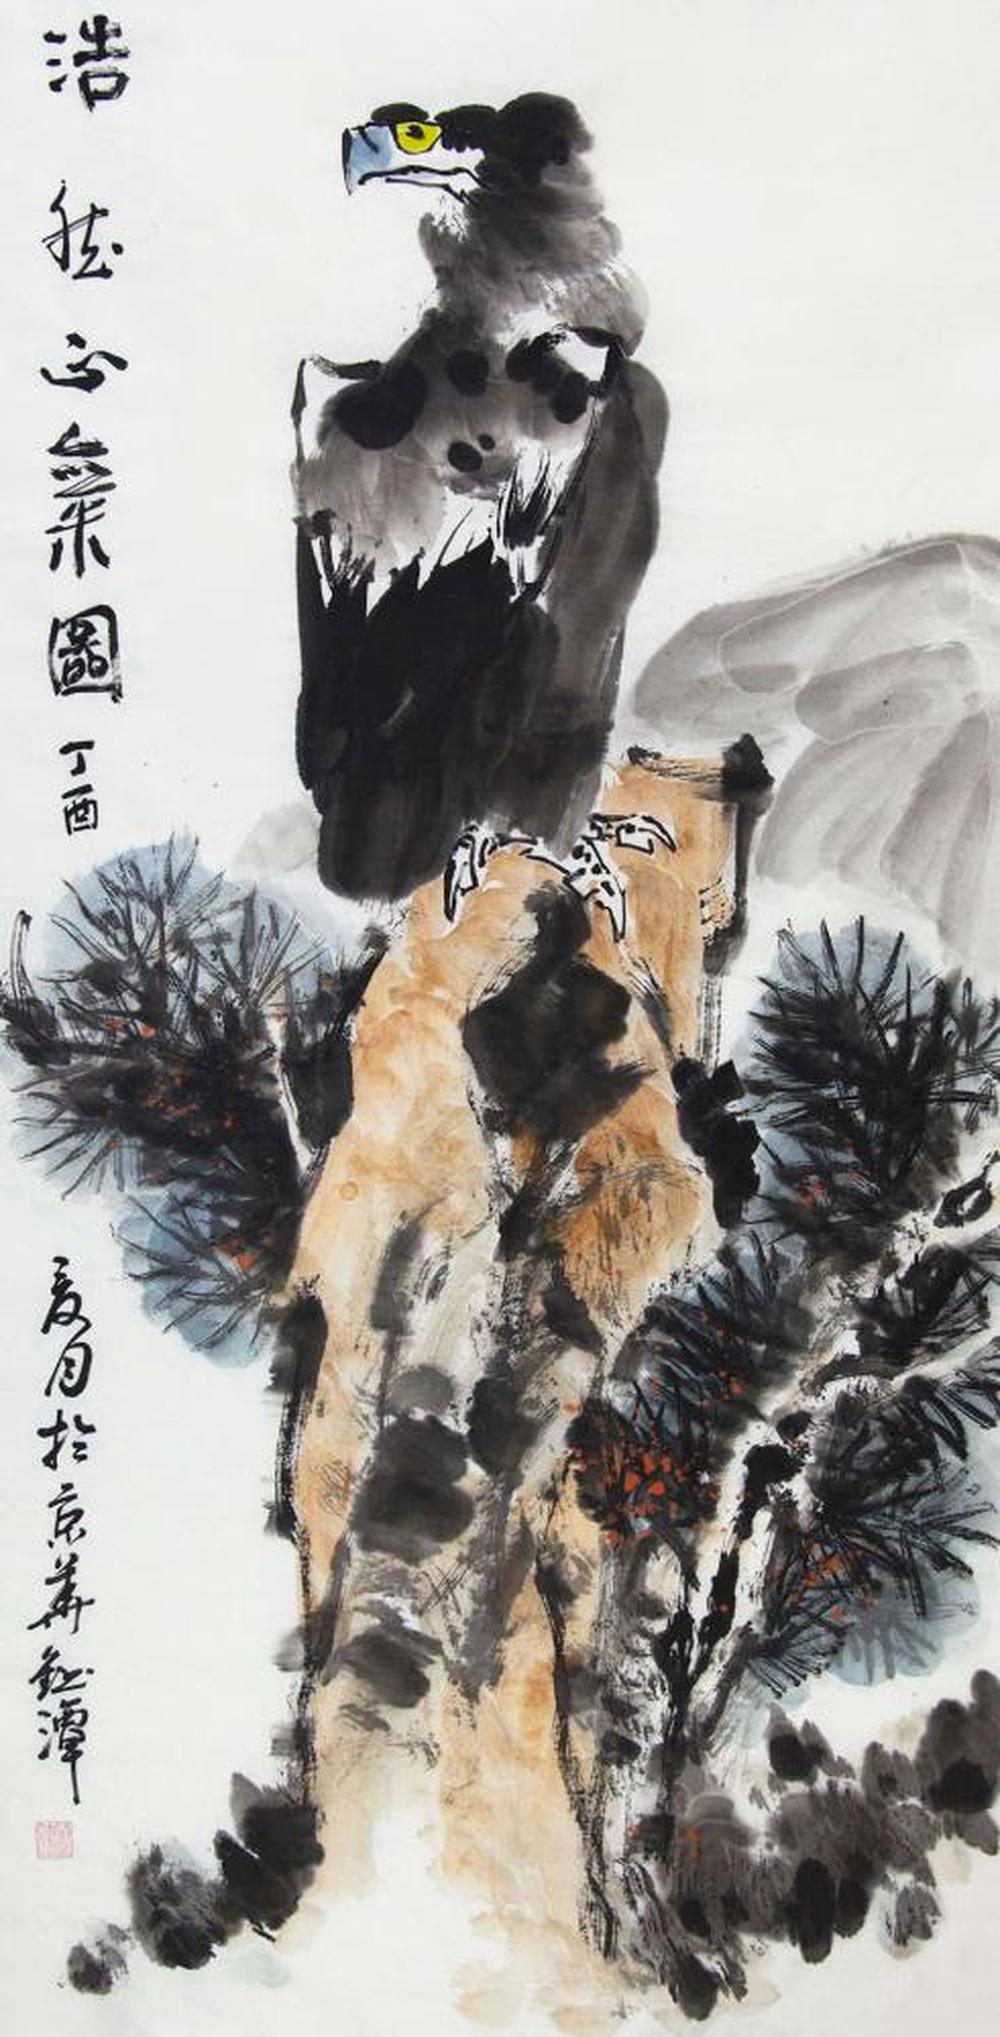 浩然正氣圖 丁酉
夏月於京華鉦潭